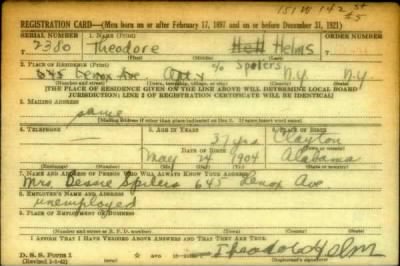 151 W 142 St
REGISTRATION CARD—(Men born on or after February 17, 1897 and on or before December 31, 1921)
SERIAL NUMBER 1. NAME (Print) ORDER NUMBER
2380 Theodore Helms
(First) (Middle) (Last)
c/o Spilers
2. PLACE OF RESIDENCE (Print)
645 Lenox Ave Apt N.Y. N-Y
(Number and street) (Town, township, village, or city) (County) (State)
[THE PLACE OF RESIDENCE GIVEN ON THE LINE ABOVE WILL DETERMINE LOCAL BOARD
JURISDICTION; LINE 2 OF REGISTRATION CERTIFICATE WILL BE IDENTICAL]
3. MAILING ADDRESS
same
[Mailing address if other than place indicated on line 2. If same insert word same]
4. TELEPHONE 5. AGE IN YEARS 6. PLACE OF BIRTH
37 yrs Clayton
DATE OF BIRTH
May 24 1904 Alabama
(Exchange) (Number) (Mo.) (Day) (Yr.) (State or country)
7. NAME AND ADDRESS OF PERSON WHO WILL ALWAYS KNOW YOUR ADDRESS
Mrs Bessie Spilers 645 Lenox Ave
8. EMPLOYER'S NAME AND ADDRESS
unemployed
9. PLACE OF EMPLOYMENT OR BUSINESS
(Number and street or R. F. D. number) (Town) (County) (State)
I AFFIRM THAT I HAVE VERIFIED ABOVE ANSWERS AND THAT THEY ARE TRUE.
D. S. S. Form 1
(Revised 1-1-42) (over) Theodore Helm
(Registrant's signature)